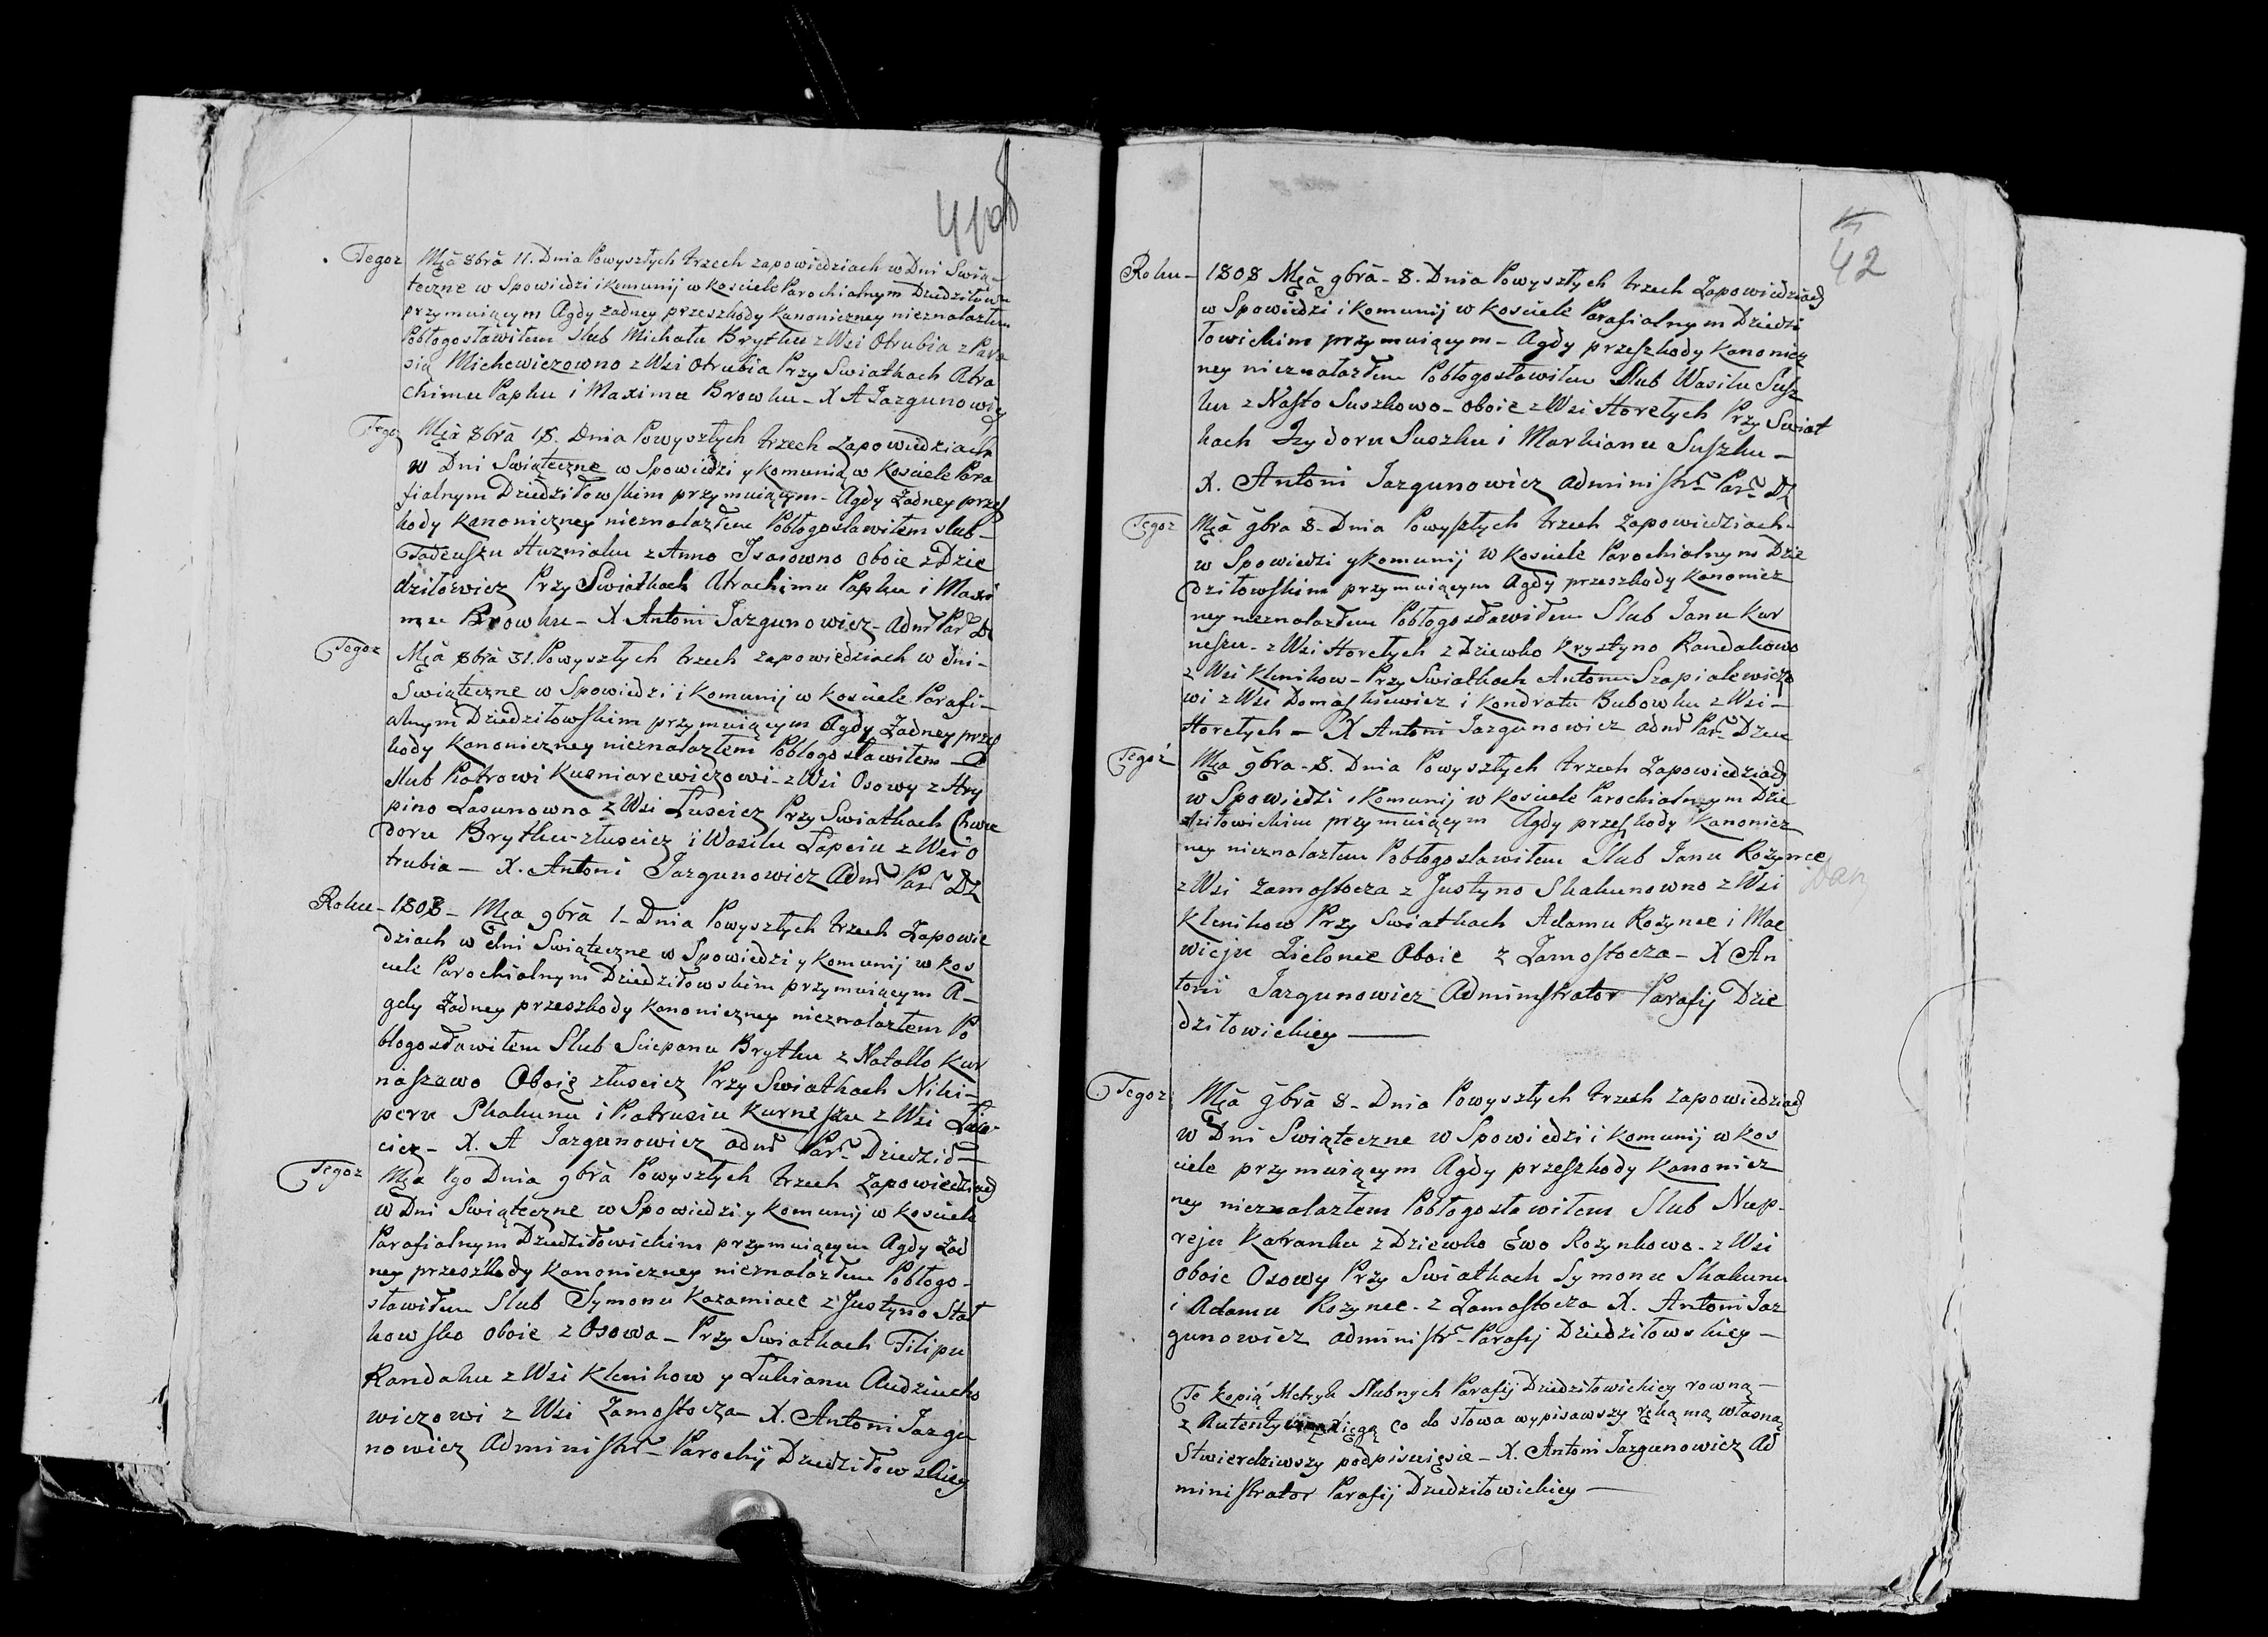 41об
Tegoz Mcā 8brā 11. Dnia Powyszłych trzech zapowiedziach w Dni Swią-
teczne w Spowiedzi i Komunij w Kosciele Parochialnym Dziedziłow
przymuiącym Agdy żadney przeszkody Kanoniczney nieznalazłem
Pobłogosławiłem Slub Michału Brytku z Wsi Otrubia z Para
sią Michowiczowno z Wsi Otrubia Przy Swiatkach Atra
chimu Papku i Maximu Browku - X A Jazgunowicz
Tegoz Mcā 8brā 18. Dnia Powyszłych trzech Zapowiedziach
w Dni Swiąteczne w Spowiedzi y Komunią w Kosciele Para
fialnym Dziedziłowskim przymuiącym - Agdy Żadney przes
kody Kanoniczney nieznalazłem Pobłogosławiłem slub -
Tadeuszu Huzniaku z Anno Isaiowno oboie z Dzie
dziłowicz Przy Swiatkach Atrachimu Papku i Maxi
mu Browku - X Antoni Jazgunowicz - Admr Par Dz
Tegoz Mcā 8brā 31. Powyszłych trzech zapowiedziach w dni -
Swiąteczne w Spowiedzi i Komunij w Kosciele Parafi -
alnym Dziedziłowskim przymuiącym Agdy Żadney przes
kody Kanoniczney nieznalazłem Pobłogosławiłem -
Slub Piotrowi Kusniarewiczowi - z Wsi Osowy z Hry
pino Lasunowno z Wsi Łuscicz Przy Swiatkach Chwe
doru Brytku - złuscicz i Wasilu Łapciu z Wsi O
trubia - X. Antoni Jazgunowicz Admr Par Dz
Roku - 1808 - Mca 9brā 1 - Dnia Powyszłych trzech Zapowie
dziach w dni Swiąteczne w Spowiedzi y Komunij w Kos
ciele Parochialnym Dziedziłowskim przymuiącym A -
gdy Żadney przeszkody Kanoniczney nieznalazłem Po
błogosławiłem Slub Sciepanu Brytku z Natallo Kur
niaszawo Oboie złuscicz Przy Swiatkach Niki -
peru Skakunu i Piatrusiu Kurneszu z Wsi Łus -
cicz - X. A Jazgunowicz admr Par Dziedził -
Tegoz Mca 1go Dnia 9brā Powyszłych trzech Zapowiedziach
w Dni Swiąteczne w Spowiedzi y Komunij w Kosciele
Parafialnym Dziedziłowickim przymuiącym Agdy Żad
ney przeszkody Kanoniczney nieznalazłem Pobłogo -
sławiłem Slub Symonu Kazamiace z Justyno Stat
kowsko oboie z Osowa - Przy Swiatkach Filipu
Randaku z Wsi Klenikow y Lukianu Audziucho
wiczowi z Wsi Zamostocza X. Antoni Jazgu
nowicz Administr - Parochij Dziedziłowskiey
42
Roku - 1808 Mcā 9brā - 8. Dnia Powyszłych trzech Zapowiedziach
w Spowiedzi i Komunij w Kosciele Parafialnym Dziedzi
łowickim przymuiącym - Agdy przeszkody Kanonicz
ney nieznalazłem Pobłogosławiłem Slub Wasilu Susz
ku z Nasto Suszkowo - oboie z Wsi Horełych Przy Swiat
kach Izydoru Suszku i Markianu Suszku -
X. Antoni Jazgunowicz administr Par Dz
Tegoz Mcā 9bra 8 - Dnia Powyszłych trzech Zapowiedziach -
w Spowiedzi y Komunij w Kosciele Parochialnym Dzie
dziłowskim przymuiącym Agdy przeszkody Kanonicz
ney nieznalazłem Pobłogosławiłem Slub Janu Kur
neszu - z Wsi Horełych z Dziewko Krystyno Randakowo
z Wsi Klenikow - Przy Swiatkach Antonu Szapialewiczo
wi z Wsi Domaskiewicz i Kondratu Bubowku z Wsi -
Horełych - X Antoni Jazgunowicz admr Par Dzie
Tegoż Mca 9bra - 8. Dnia Powyszłych trzech Zapowiedziach
w Spowiedzi i Komunij w Kosciele Parochialnym Dzie
dziłowickim przymuiącym Agdy przeszkody Kanonicz
ney nieznalazłem Pobłogosławiłem Slub Janu Rozynce
z Wsi Zamostocza z Justyno Skakunowno z Wsi
Klenikow Przy Swiatkach Adamu Rozynce i Mac
wieju Zielonce Oboie z Zamostocza - X An
toni Jazgunowicz Administrator Parafij Dzie
dziłowickiey
Tegoz Mcā 9brā 8 - Dnia Powyszłych trzech zapowiedziach
w Dni Swiąteczne w Spowiedzi i Komunij w Kos
ciele przymuiącym Agdy przeszkody Kanonicz
ney nieznalazłem Pobłogosławiłem Slub Nup -
reju Katranku z Dziewko Ewo Rozynkowo - z Wsi
oboie Osowy Przy Swiatkach Symonu Skakunu
i Adamu Rozynce - z Zamostocza X. Antoni Jaz
gunowicz administr - Parafij Dziedziłowskiey -
Te Kopią Metryk Slubnych Parafij Dziedziłowickiey rowną -
z Autentyczną Xięgą co do słowa wypisawszy ręką mą własną
Stwierdziwszy podpisuięsie - X. Antoni Jazgunowicz Ad
ministrator Parafij Dziedziłowickiey -